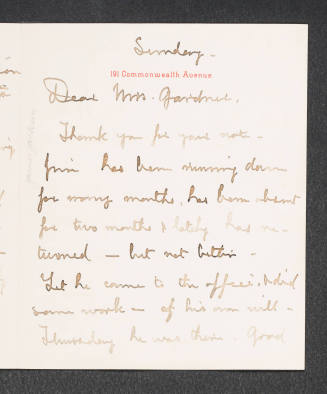 Sunday -
191 Commonwealth Avenue
Dear Mrs. Gardner,
Thank you for your note -
has been running down
for many months, has been absent
for two months & lately has re-
turned - but not better -
Yet he came to the office, & did
some work - of his own will -
Thursday he was there. Good